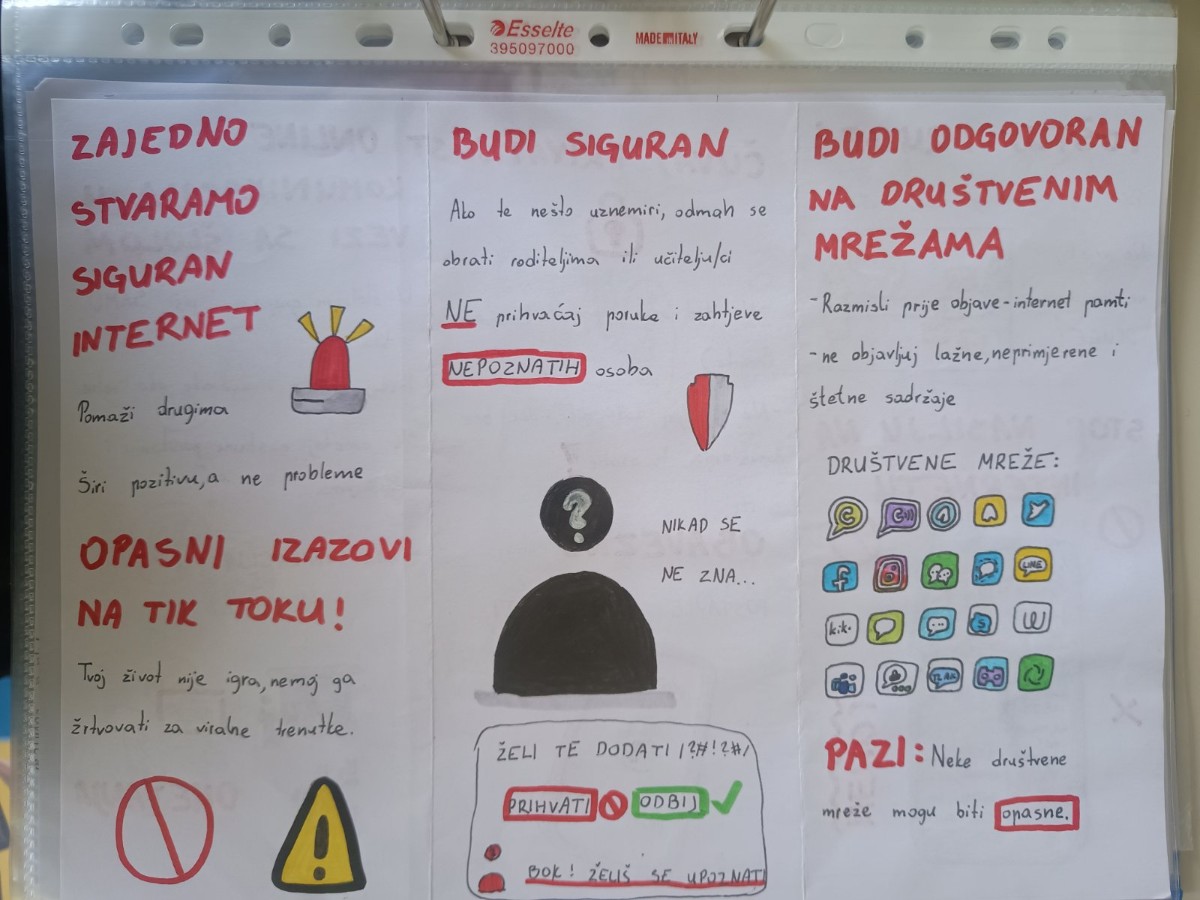 Esselte
395097000
MADE IN ITALY
ZAJEDNO
STVARAMO
SIGURAN
INTERNET
Pomaži drugima
Širi pozitivu, a ne probleme
OPASNI IZAZOVI
NA TIK TOKU!
Tvoj život nije igra, nemoj ga
žrtvovati za viralne trenutke.
BUDI SIGURAN
Ako te nešto uznemiri, odmah se
obrati roditeljima ili učitelju/ci
NE prihvaćaj poruke i zahtjeve
NEPOZNATIH osoba
?
NIKAD SE
NE ZNA...
ŽELI TE DODATI /?#!?#/
PRIHVATI ODBIJ
BOK! ŽELIŠ SE UPOZNATI
BUDI ODGOVORAN
NA DRUŠTVENIM
MREŽAMA
-Razmisli prije objave-internet pamti
-ne objavljuj lažne, neprimjerene i
štetne sadržaje
DRUŠTVENE MREŽE:
LINE
kik.
PAZI: Neke društvene
mreže mogu biti opasne.